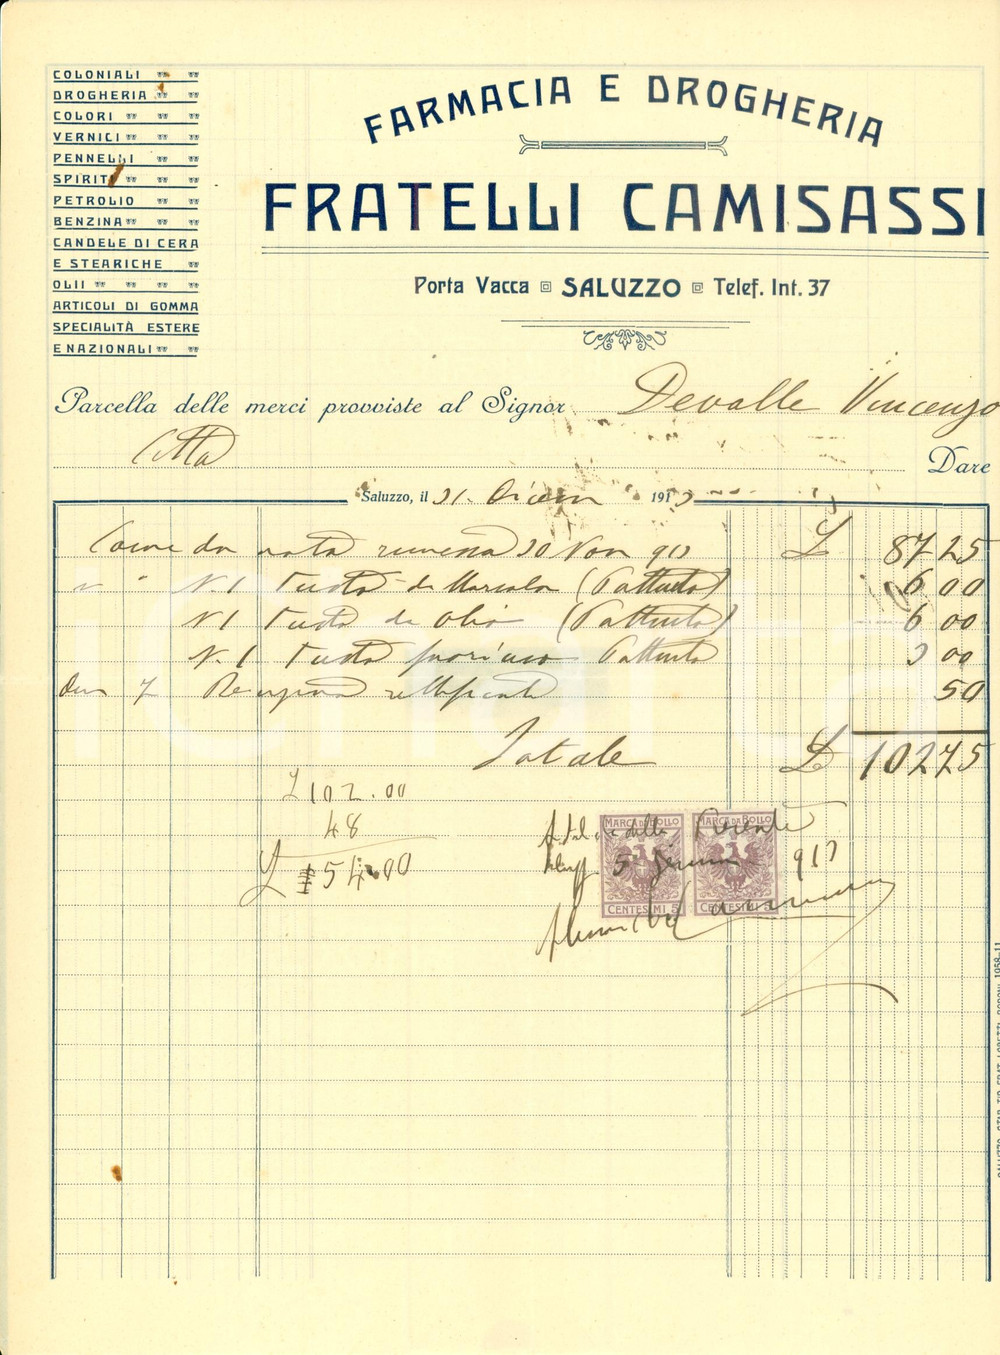 COLONIALI
DROGHERIA
COLORI
VERNICI
PENNELLI
SPIRITI
PETROLIO
BENZINA
CANDELE DI CERA
E STEARICHE
OLII
ARTICOLI DI GOMMA
SPECIALITÀ ESTERE
E NAZIONALI
FARMACIA E DROGHERIA
FRATELLI CAMISASSI
Porta Vacca SALUZZO Telef. Int. 37
Parcella delle merci provviste al Signor Devalle Vincenzo
Città Dare
Saluzzo, il 31. 191
Come da nota rimessa 30 Nov 913 L 87 25
N. 1 Fusto da Marsala (Pattuito) 6 00
N 1 Fusto da olio (Pattuito) 6 00
N. 1 Fusto Pattuito 3 00
7 50
Totale L 102 75
L 102.00
48
L 54.00
MARCA DA BOLLO MARCA DA BOLLO
5 913
CENTESIMI 5 CENTESIMI 5